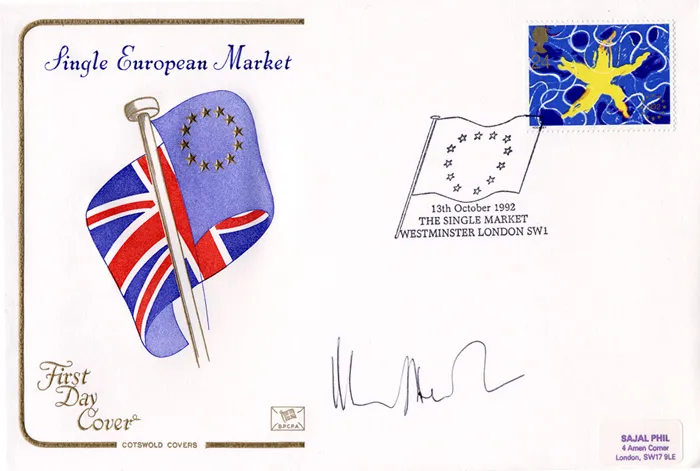 Single European Market
24
13th October 1992
THE SINGLE MARKET
WESTMINSTER LONDON SW1
First
Day
Cover
B.P.C.P.A.
COTSWOLD COVERS
SAJAL PHIL
4 Amen Corner
London, SW17 9LE